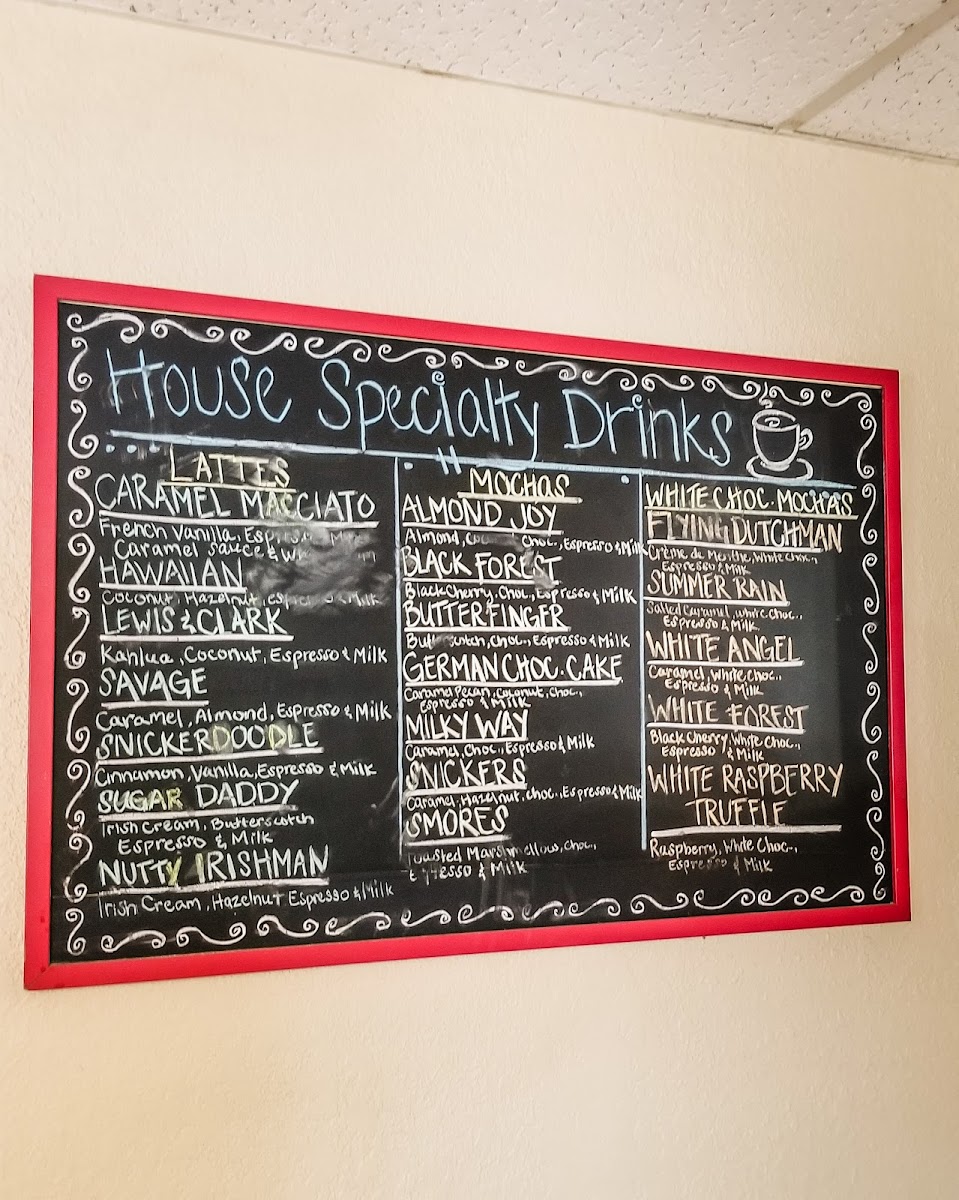 House Specialty Drinks
LATTES
CARAMEL MACCIATO
French Vanilla,
Caramel sauce &
HAWAIIAN
Coconut, Hazelnut, espresso & Milk
LEWIS & CLARK
Kahlua, Coconut, Espresso & Milk
SAVAGE
Caramel, Almond, Espresso & Milk
SNICKERDOODLE
Cinnamon, Vanilla, Espresso & Milk
SUGAR DADDY
Irish Cream, Butterscotch
Espresso & Milk
NUTTY IRISHMAN
Irish Cream, Hazelnut Espresso & Milk
MOCHAS
ALMOND JOY
Almond, Choc., Espresso & Milk
BLACK FOREST
Black Cherry, Choc., Espresso & Milk
BUTTERFINGER
Butterscotch, Choc., Espresso & Milk
GERMAN CHOC. CAKE
Caramel Pecan, Coconut, Choc.,
Espresso & Milk
MILKY WAY
Caramel, Choc., Espresso & Milk
SNICKERS
Caramel, Hazelnut, Choc., Espresso & Milk
SMORES
Toasted Marshmellow, Choc.,
Espresso & Milk
WHITE CHOC. MOCHAS
FLYING DUTCHMAN
Crème de Menthe, White Choc.,
Espresso & Milk
SUMMER RAIN
Salted Caramel, White Choc.,
Espresso & Milk.
WHITE ANGEL
Caramel, White Choc.,
Espresso & Milk
WHITE FOREST
Black Cherry, White Choc.,
Espresso & Milk
WHITE RASPBERRY
TRUFFIE
Raspberry, White Choc.,
Espresso & Milk